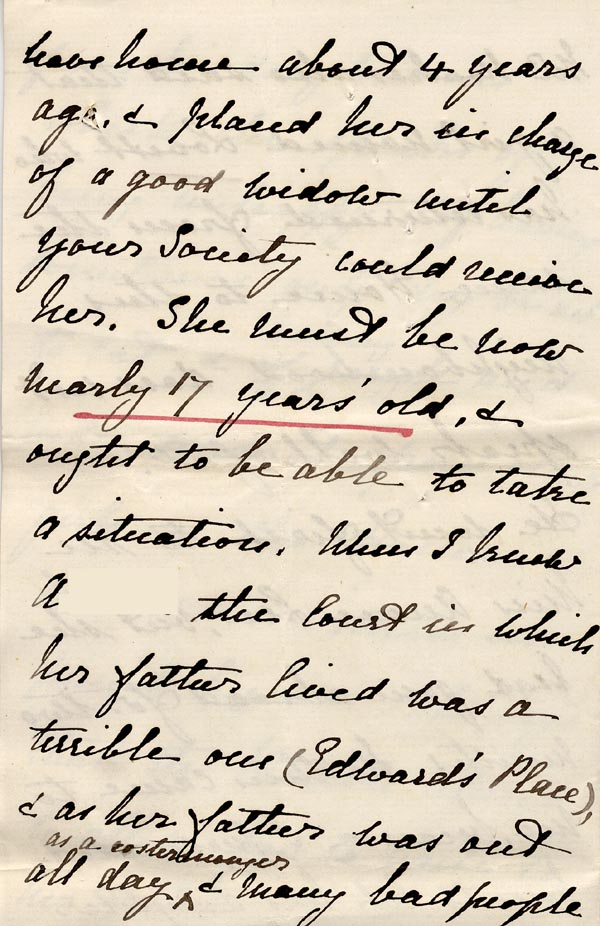 have home about 4 years
ago, & placed her in charge
of a good widow until
your Society could receive
her. She must be now
nearly 17 years' old, &
ought to be able to take
a situation. When I knew
A the Court in which
her father lived was a
terrible one (Edward's Place),
& as her father was out
as a costermonger
all day, & many bad people